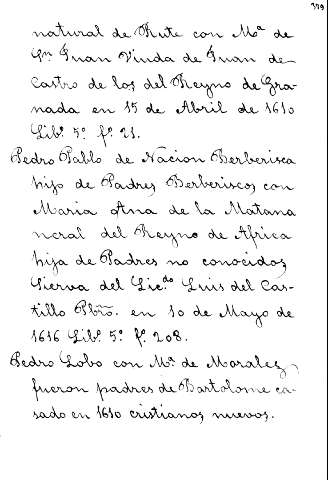 379
natural de Rute con Mª de
Sn Juan Viuda de Juan de
Castro de los del Reyno de Gra-
nada en 15 de Abril de 1610
Libº 5º fº 21.
Pedro Pablo de Nacion Berberisca
hijo de Padres Berberiscos con
Maria Ana de la Matana
neral del Reyno de Africa
hija de Padres no conocidos
Sierva del Lic.do Luis del Cas-
tillo Pbrõ. en 10 de Mayo de
1616 Libº 5º fº 208.
Pedro Lobo con Mª de Morales
fueron padres de Bartolome ca-
sado en 1610 cristianos nuevos.